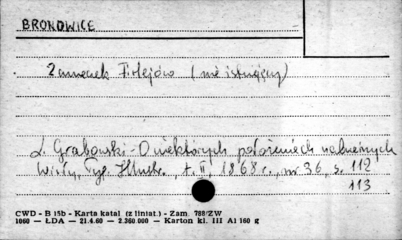 BRONOWICE
Zameczek Firlejów (nie istniejący)
L. Grabowski - O niektórych położeniach nadwiślnych
Wisły, Tyg. Illustr., t. II, 1868 r., nr 36, s. 112
113
CWD - B 15b - Karta katal (z liniat.) - Zam. 788/ZW
1060 — ŁDA — 21.4.60 — 2.360.000 — Karton kl. III A1 160 g